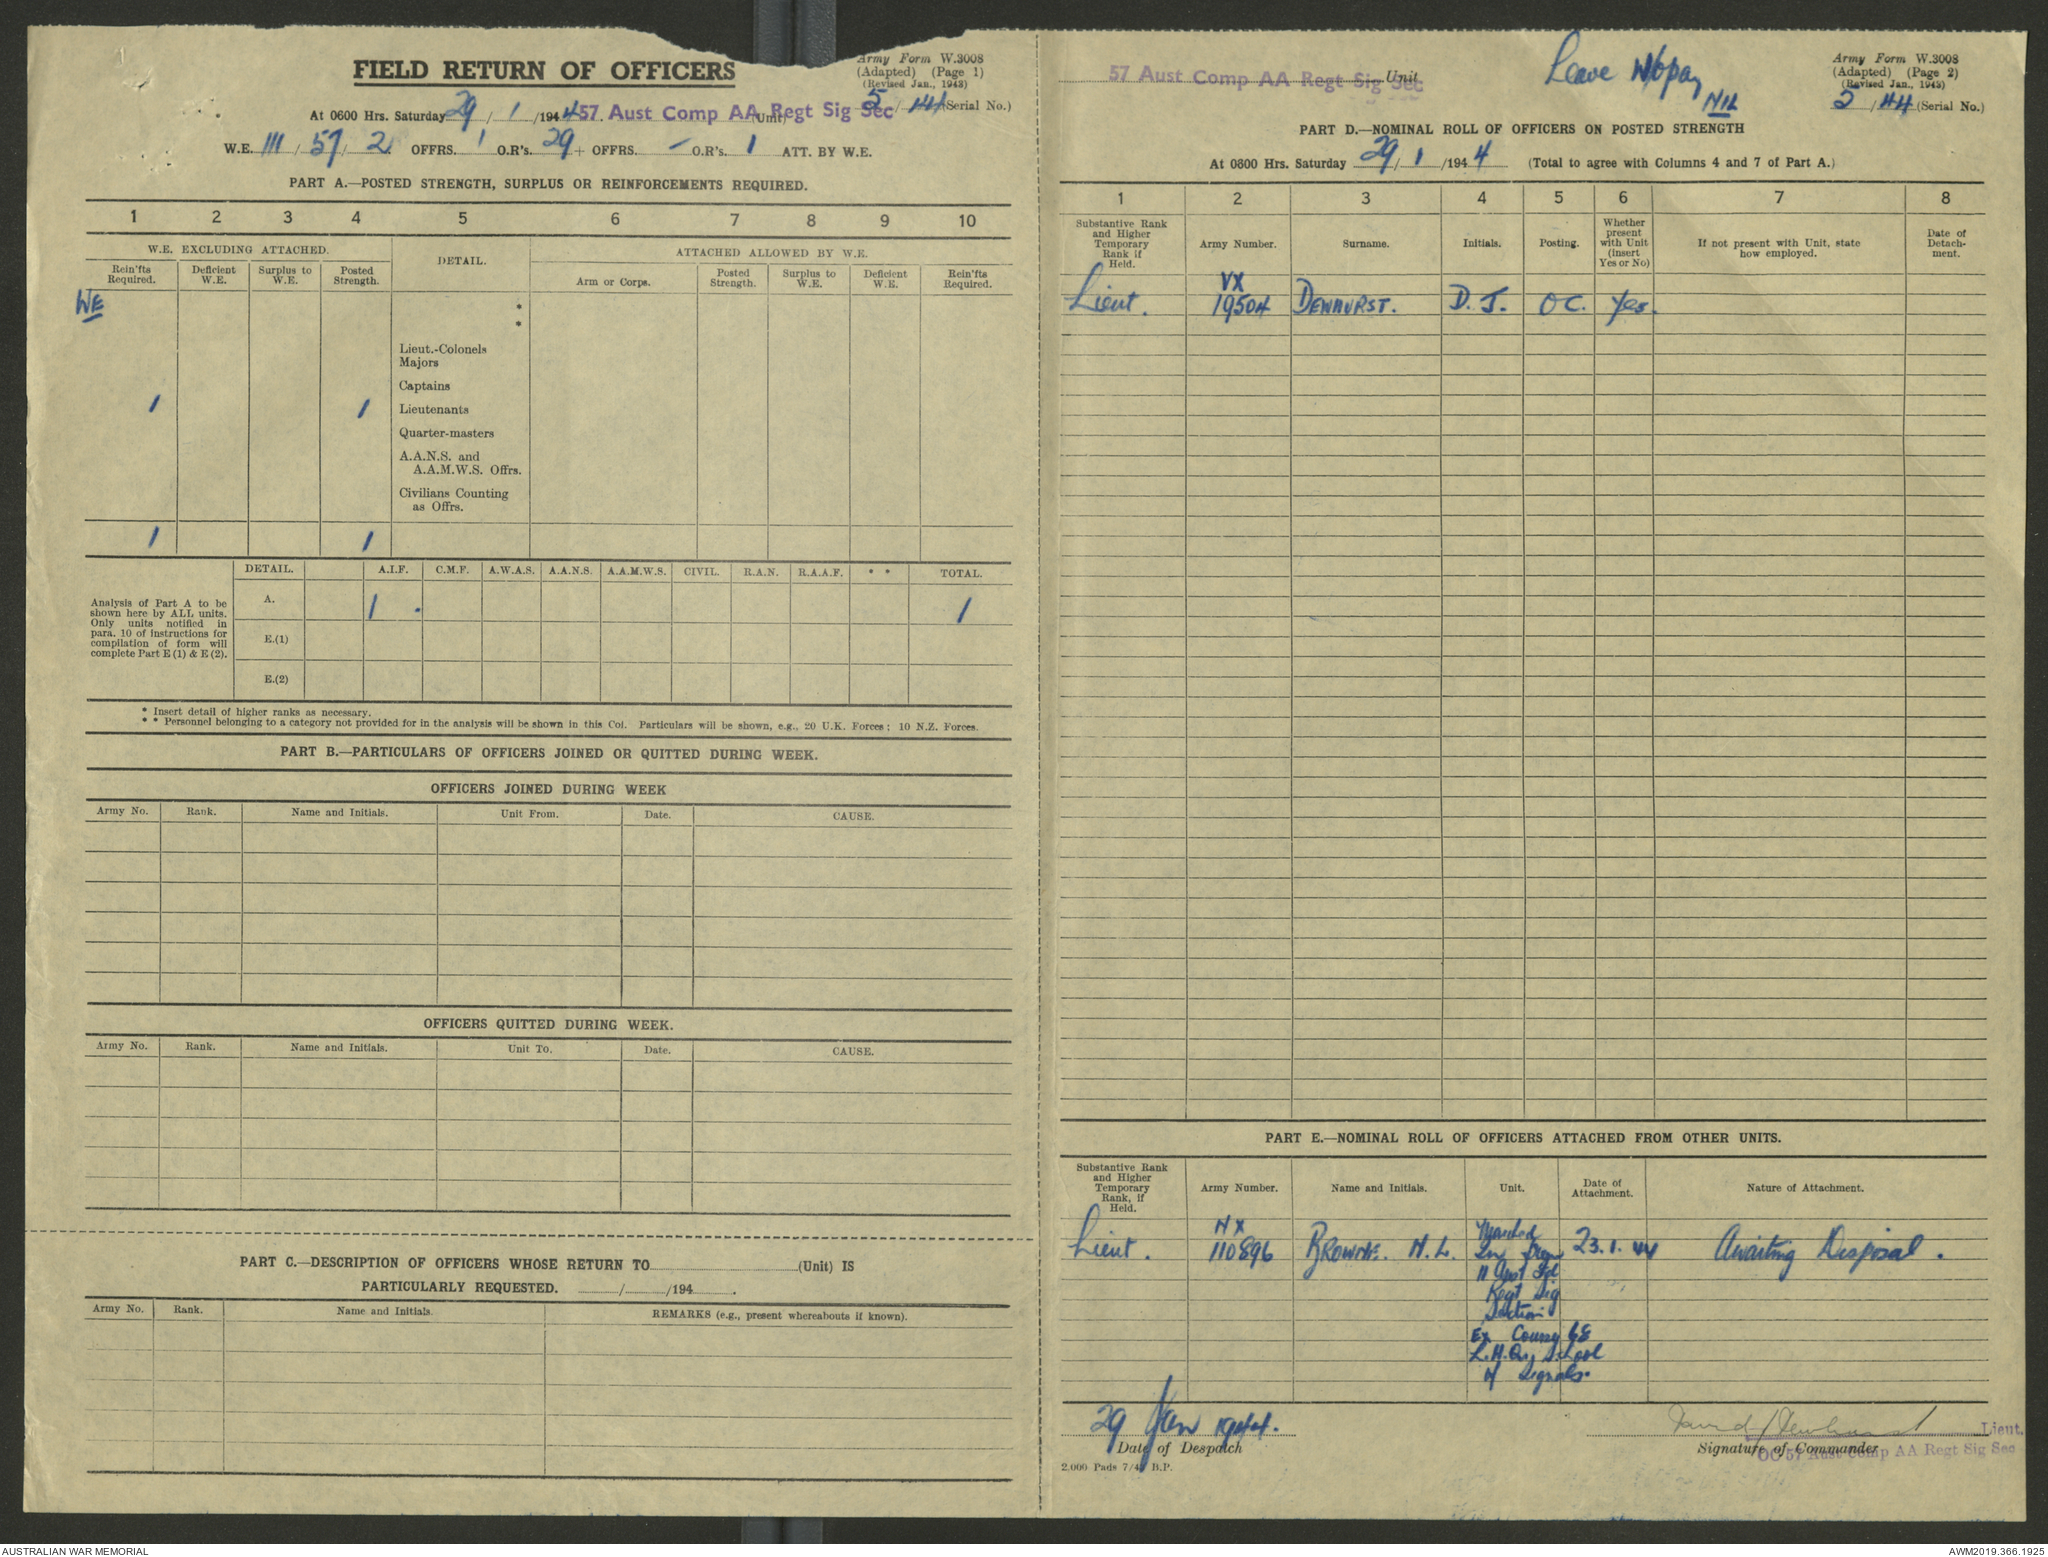 FIELD RETURN OF OFFICERS
Army Form W.3008
(Adapted) (Page 1)
(Revised Jan., 1943)
5/44 (Serial No.)
At 0600 Hrs. Saturday 29/1/1944 57 Aust Comp AA Regt Sig Sec (Unit)
W.E. III/57/2 OFFRS. 1 O.R's. 29 + OFFRS. - O.R's. 1 ATT. BY W.E.
PART A.—POSTED STRENGTH, SURPLUS OR REINFORCEMENTS REQUIRED.
1 2 3 4 5 6 7 8 9 10
W.E. EXCLUDING ATTACHED. DETAIL. ATTACHED ALLOWED BY W.E.
Rein'fts Required. Deficient W.E. Surplus to W.E. Posted Strength. Arm or Corps. Posted Strength. Surplus to W.E. Deficient W.E. Rein'fts Required.
WE
*
*
Lieut.-Colonels
Majors
Captains
1 1 Lieutenants
Quarter-masters
A.A.N.S. and
A.A.M.W.S. Offrs.
Civilians Counting
as Offrs.
1 1
Analysis of Part A to be
shown here by ALL units.
Only units notified in
para. 10 of instructions for
compilation of form will
complete Part E (1) & E (2).
DETAIL. A.I.F. C.M.F. A.W.A.S. A.A.N.S. A.A.M.W.S. CIVIL. R.A.N. R.A.A.F. * * TOTAL.
A. 1 . 1
E.(1)
E.(2)
* Insert detail of higher ranks as necessary.
* * Personnel belonging to a category not provided for in the analysis will be shown in this Col. Particulars will be shown, e.g., 20 U.K. Forces; 10 N.Z. Forces.
PART B.—PARTICULARS OF OFFICERS JOINED OR QUITTED DURING WEEK.
OFFICERS JOINED DURING WEEK
Army No. Rank. Name and Initials. Unit From. Date. CAUSE.
OFFICERS QUITTED DURING WEEK.
Army No. Rank. Name and Initials. Unit To. Date. CAUSE.
PART C.—DESCRIPTION OF OFFICERS WHOSE RETURN TO (Unit) IS
PARTICULARLY REQUESTED. / /194 .
Army No. Rank. Name and Initials. REMARKS (e.g., present whereabouts if known).
57 Aust Comp AA Regt Sig Sec Unit
Leave
NIL
Army Form W.3008
(Adapted) (Page 2)
(Revised Jan., 1943)
5/44 (Serial No.)
PART D.—NOMINAL ROLL OF OFFICERS ON POSTED STRENGTH
At 0600 Hrs. Saturday 29/1/1944 (Total to agree with Columns 4 and 7 of Part A.)
1 2 3 4 5 6 7 8
Substantive Rank and Higher Temporary Rank if Held. Army Number. Surname. Initials. Posting. Whether present with Unit (insert Yes or No) If not present with Unit, state how employed. Date of Detach-ment.
VX
Lieut. 19504 DEWHURST. D. J. OC. Yes.
PART E.—NOMINAL ROLL OF OFFICERS ATTACHED FROM OTHER UNITS.
Substantive Rank and Higher Temporary Rank, if Held. Army Number. Name and Initials. Unit. Date of Attachment. Nature of Attachment.
NX Marched
Lieut. 110896 BROWNE. N. L. In from 23.1.44 Awaiting Disposal.
11 Aust Fd
Regt Sig
Section
Ex Course 68
L.H.Q. School
of Signals.
29 Jan 1944.
Date of Despatch
2,000 Pads 7/43 B.P.
David J Dewhurst Lieut.
Signature of Commander
OC 57 Aust Comp AA Regt Sig Sec
AUSTRALIAN WAR MEMORIAL
AWM2019.366.1925